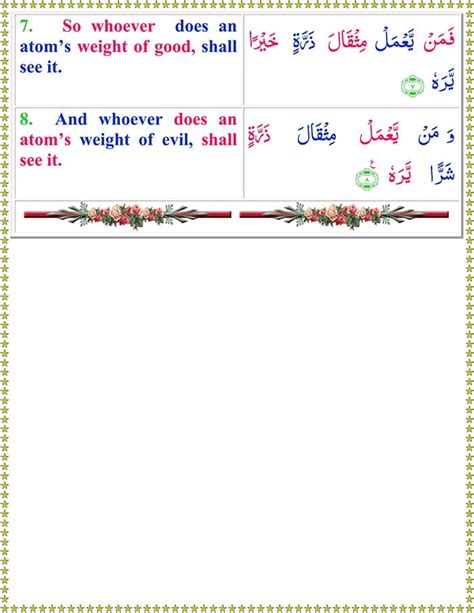 7. So whoever does an
atom's weight of good, shall
see it.
فَمَنۡ يَّعۡمَلۡ مِثۡقَالَ ذَرَّةٍ خَيۡرًا
يَّرَهٗ ۷
8. And whoever does an
atom's weight of evil, shall
see it.
وَ مَنۡ يَّعۡمَلۡ مِثۡقَالَ ذَرَّةٍ
شَرًّا يَّرَهٗ ۸ ع